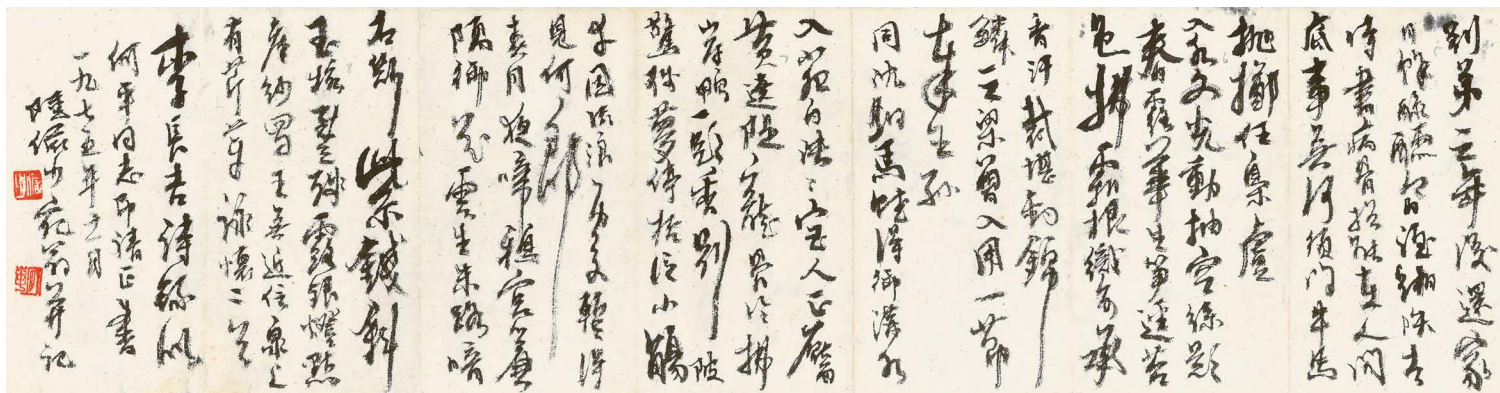 別弟三年後還家
一日餘醁醽今日酒緗帙去
時書病骨猶能在人間
底事無何須問牛馬
拋擲任梟盧
入水文光動抽空綠影
春露華生筍逕苔
色拂霜根織可承
香汗裁堪釣錦
鱗三梁曾入用一節
奉王孫
同沈駙馬賦得御溝水
入苑白泱泱宮人正靨
黃遶隄龍骨冷拂
岸鴨頭香別
驚殘夢停杯泛小觴
幸因流浪處暫得
見何郎
春月夜啼鴉宮簾
隔御花雲生朱絡暗
石斷紫錢斜
玉椀盛殘露銀燈點
舊紗蜀王無近信泉上
有芹芽詠懷二首
李長吉詩錄似
何平同志即請正書
一九七五年 月
陸儼少宛翁并記